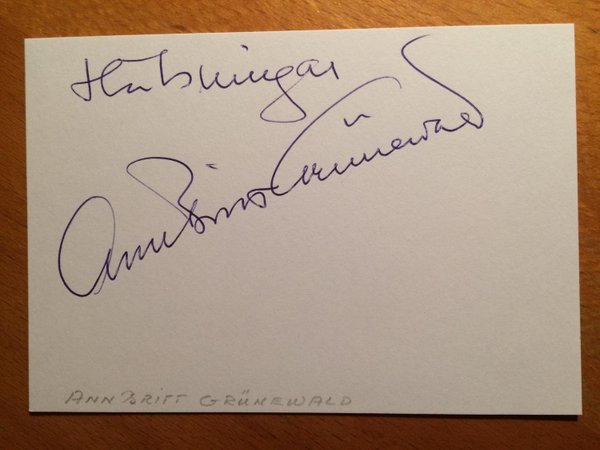 Hälsningar
AnnBritt Grünewald
ANN BRITT GRÜNEWALD